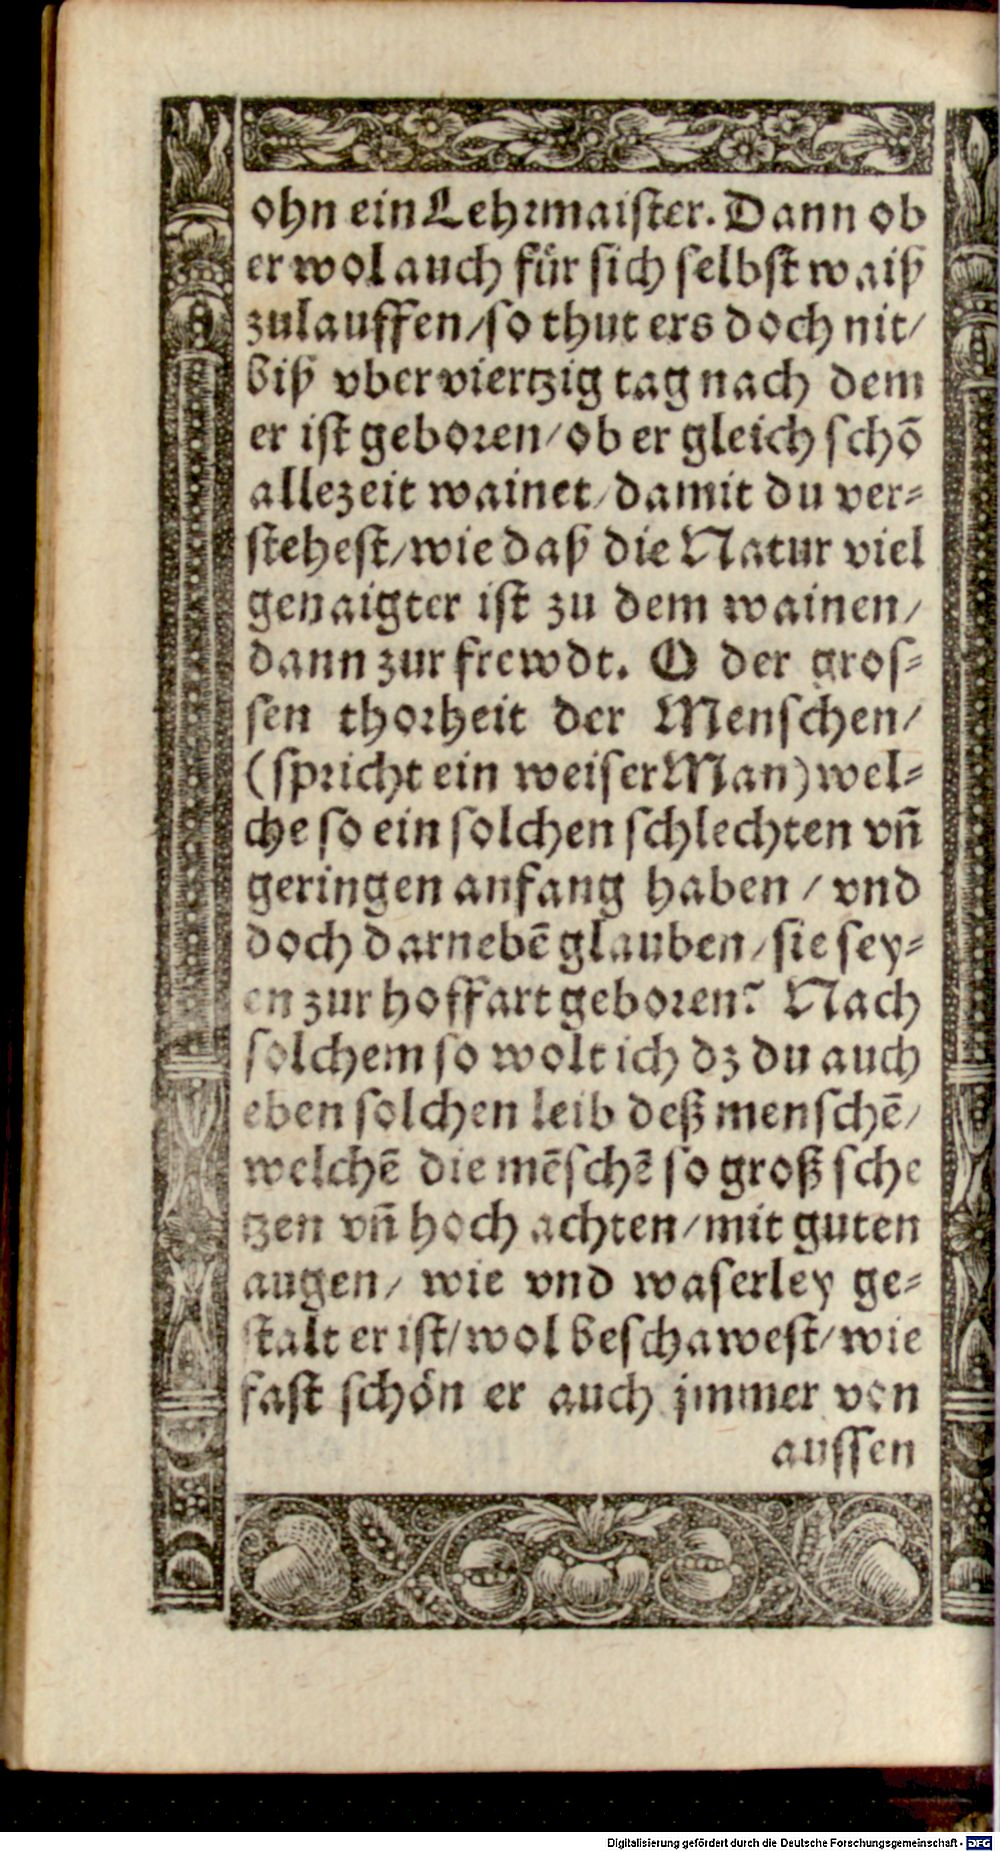 ohn ein Lehrmaister. Dann ob
er wol auch für sich selbst waiß
zulauffen/so thut ers doch nit/
biß vber viertzig tag nach dem
er ist geboren/ob er gleich schō
allezeit wainet/damit du ver⸗
stehest/wie daß die Natur viel
genaigter ist zu dem wainen/
dann zur frewdt. O der gros⸗
sen thorheit der Menschen/
(spricht ein weiser Man) wel⸗
che so ein solchen schlechten vñ
geringen anfang haben / vnd
doch darnebē glauben/sie sey⸗
en zur hoffart geboren? Nach
solchem so wolt ich dz du auch
eben solchen leib deß menschē/
welchē die mēschē so groß sche
tzen vñ hoch achten/mit guten
augen/ wie vnd waserley ge⸗
stalt er ist/wol beschawest/wie
fast schön er auch jmmer von
aussen
Digitalisierung gefördert durch die Deutsche Forschungsgemeinschaft - DFG